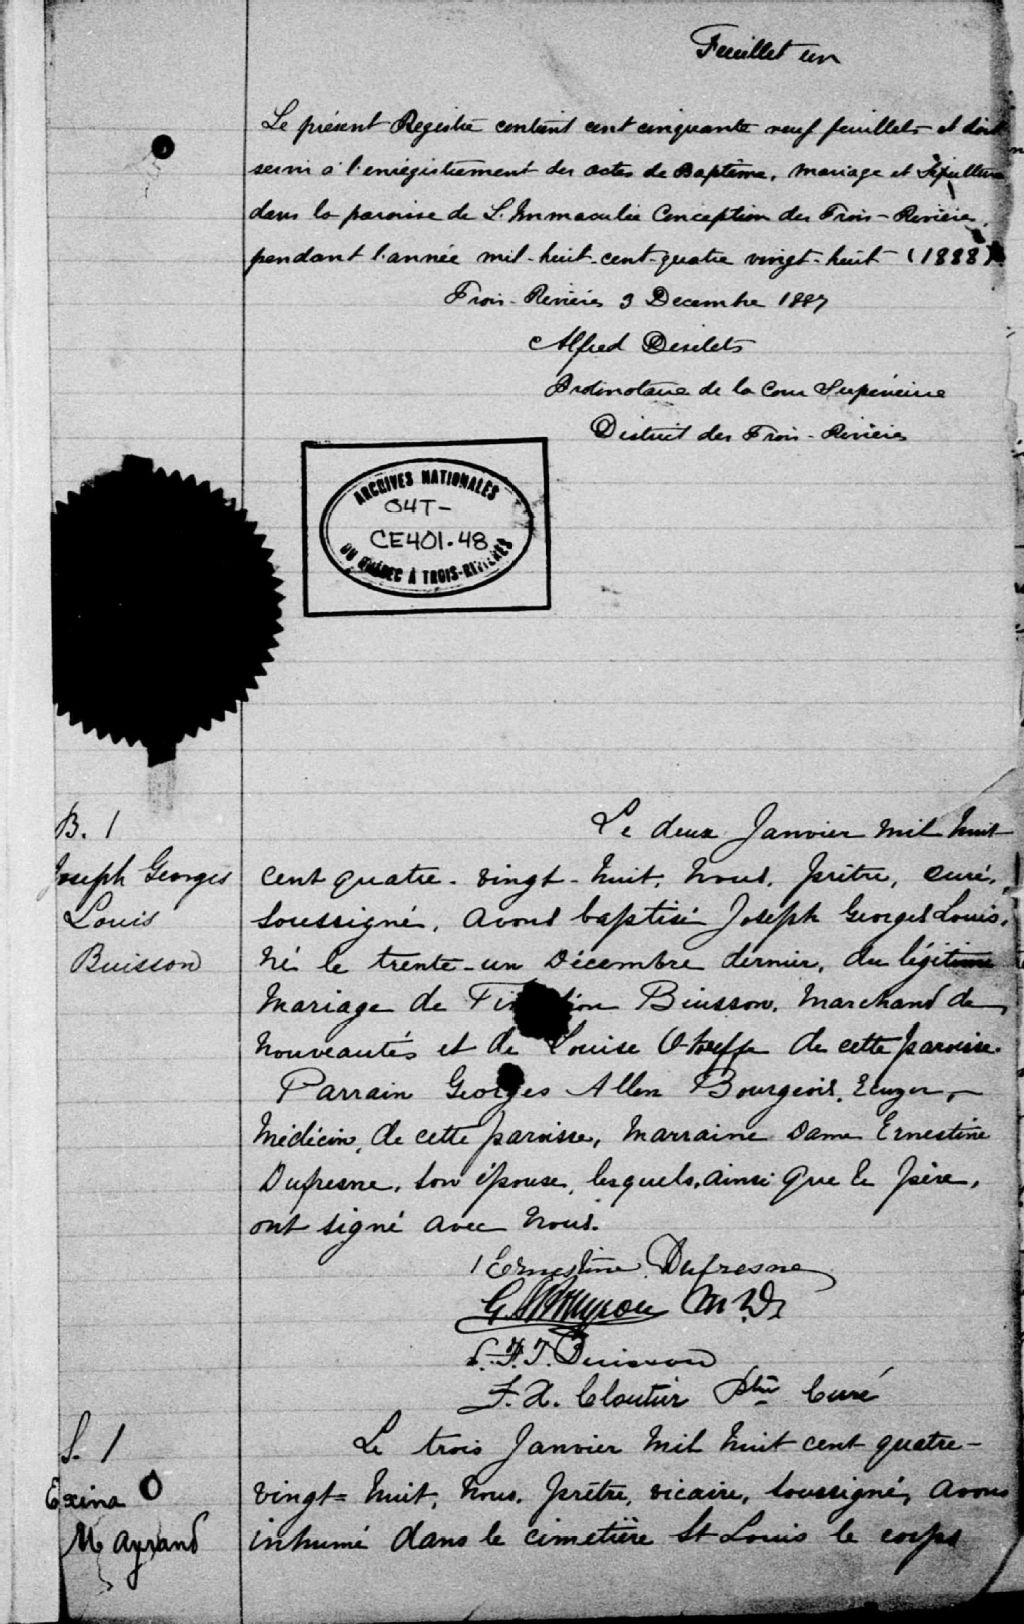 Feuillet un
Le présent Registre contient cent cinquante neuf feuillets et doit
servir à l'enregistrement des actes de Baptême, mariage et Sépulture
dans la paroisse de L'Immaculée Conception des Trois-Rivières
pendant l'année mil-huit-cent-quatre vingt-huit (1888).
Trois-Rivières 3 Decembre 1887
Alfred Desilets
Protonotaire de la Cour Supérieure
District des Trois-Rivières
ARCHIVES NATIONALES
04T-
CE401.48
DU QUÉBEC À TROIS-RIVIÈRES
B. 1
Joseph Georges
Louis
Buisson
Le deux Janvier mil huit
cent quatre-vingt-huit, Nous, Prêtre, curé,
soussigné, avons baptisé Joseph Georges Louis,
né le trente-un Décembre dernier, du légitime
mariage de Buisson, Marchand de
nouveautés et de Louise de cette paroisse.
Parrain Georges Allen Bourgeois, Ecuyer,
Médecin, de cette paroisse, marraine Dame Ernestine
Dufresne, son épouse, lesquels, ainsi que le père,
ont signé avec nous.
Ernestine Dufresne
G. M.D.
F. T. Buisson
F. X. Cloutier Ptre Curé
S. 1
Exina
Mayrand
Le trois Janvier mil huit cent quatre-
vingt=huit, Nous, Prêtre, vicaire, soussigné, avons
inhumé dans le cimetière St Louis le corps